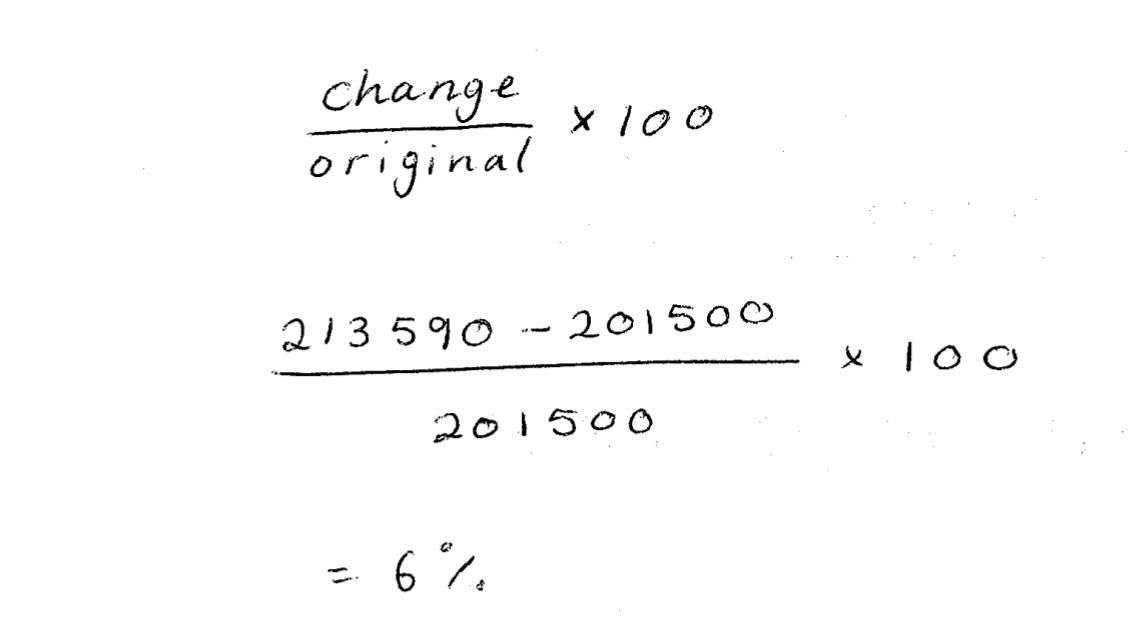 change
original × 100
213590 - 201500
201500 × 100
= 6%